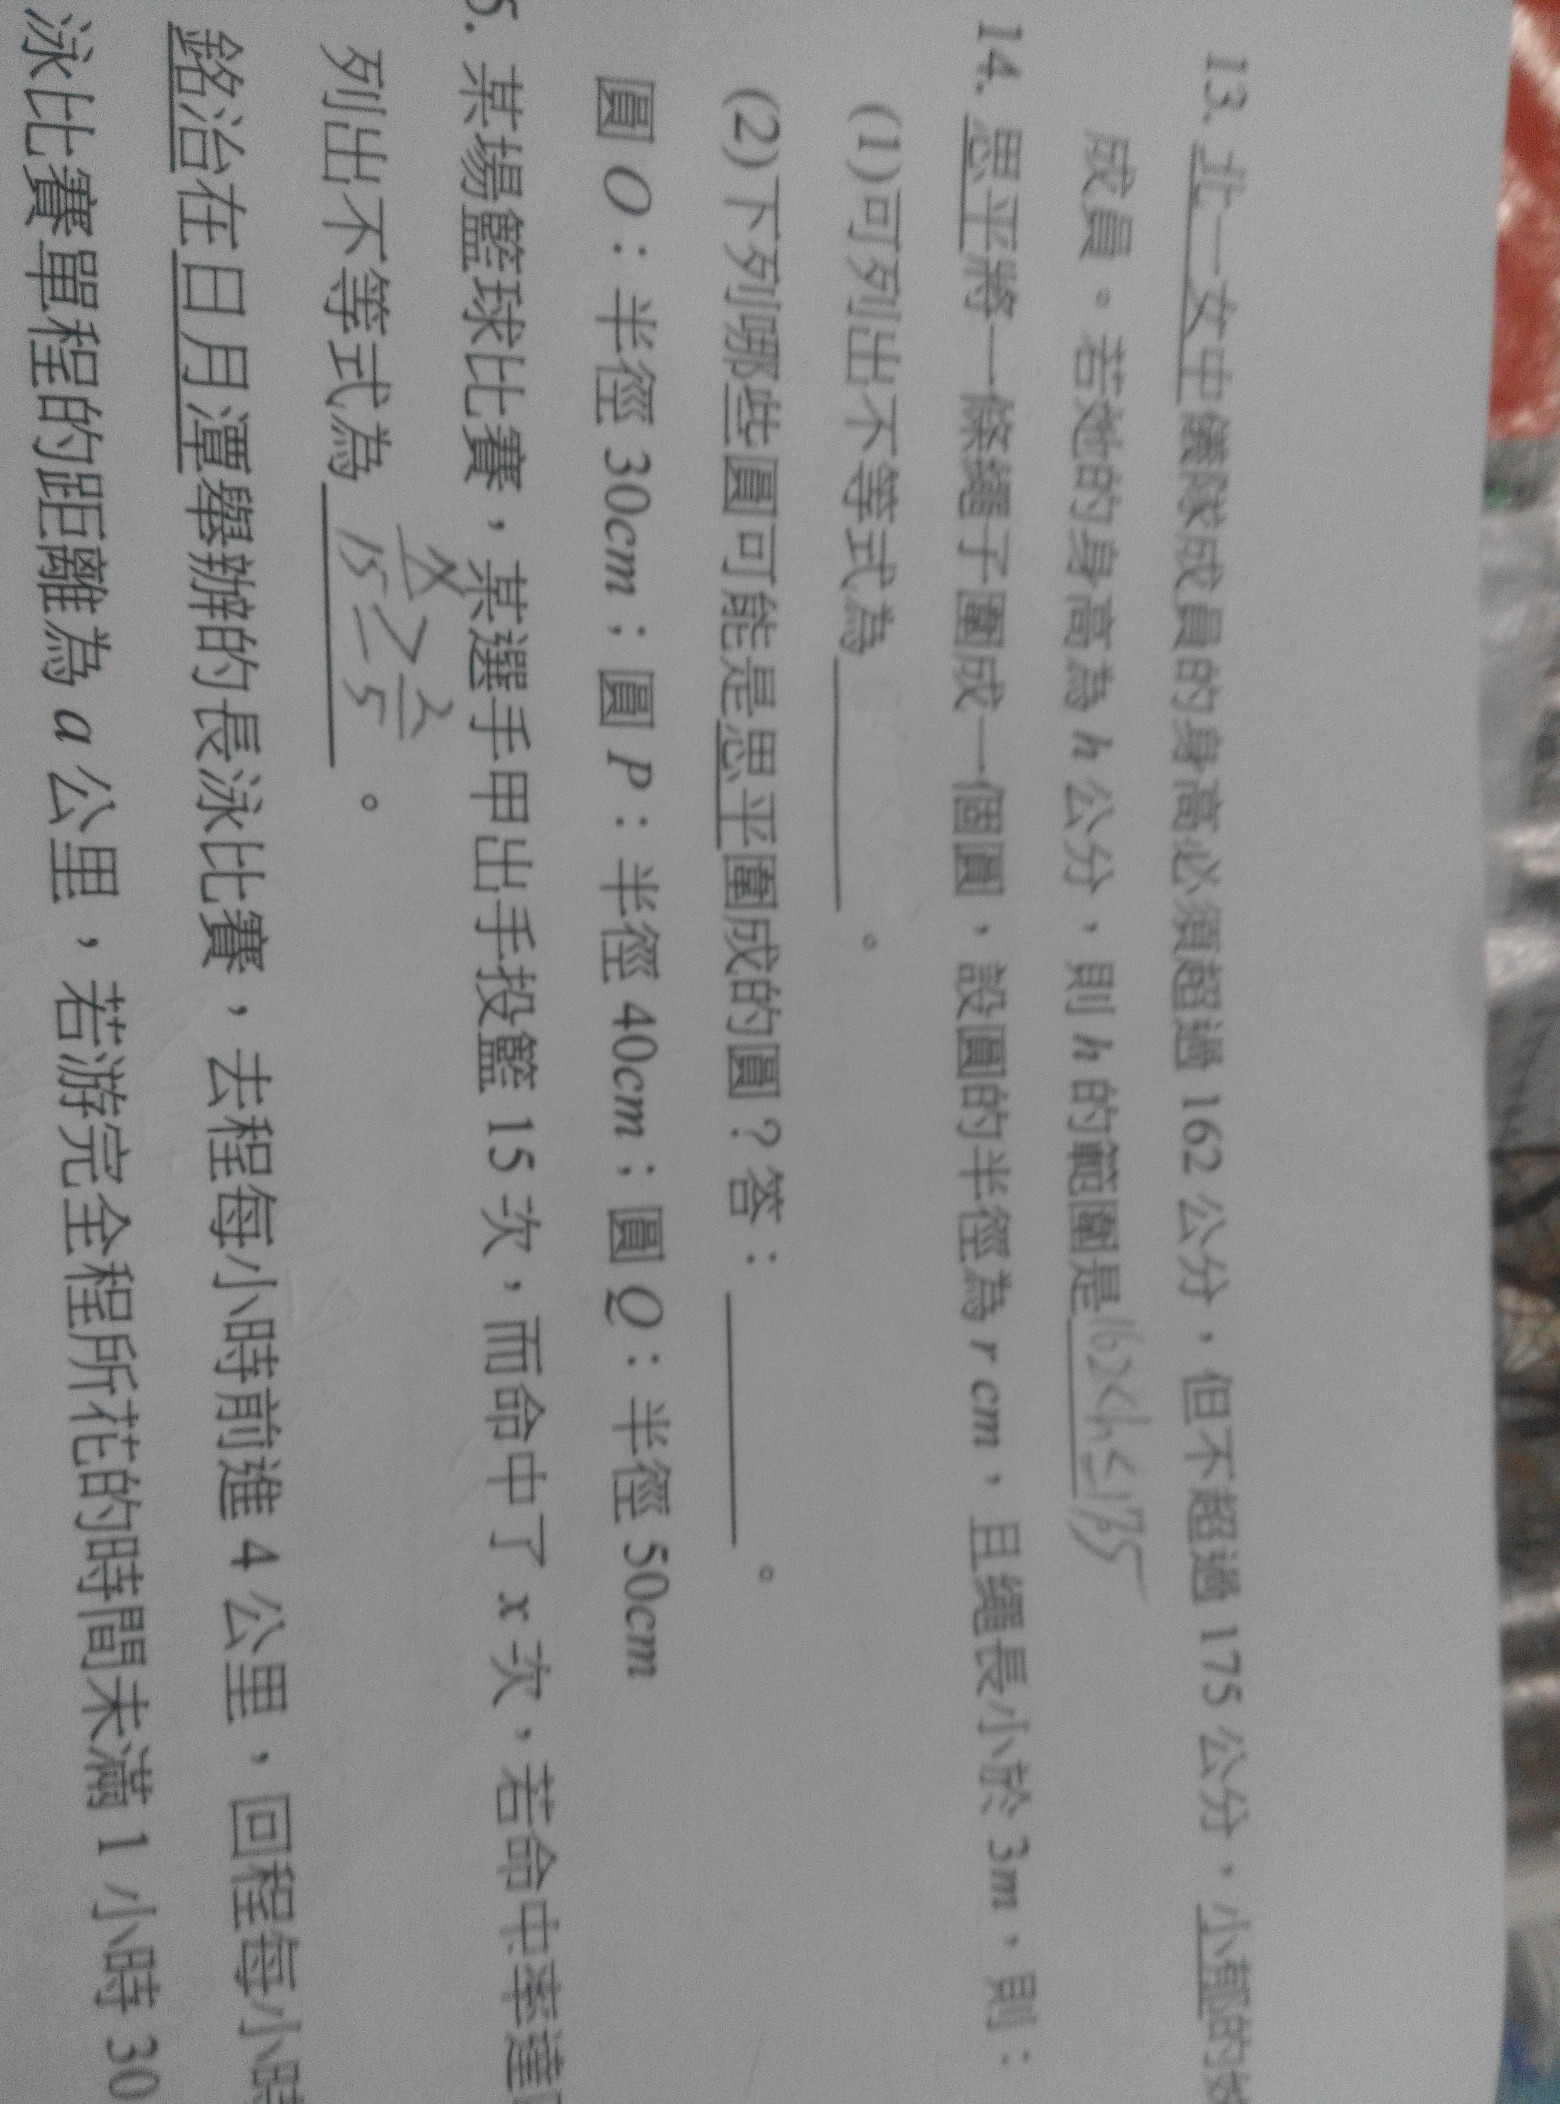 13. 北一女中儀隊成員的身高必須超過 162 公分，但不超過 175 公分，小都的
成員。若她的身高為 h 公分，則 h 的範圍是162<h≤175
14. 思平將一條繩子圍成一個圓，設圓的半徑為 r cm，且繩長小於 3m，則：
(1)可列出不等式為______。
(2)下列哪些圓可能是思平圍成的圓？答：______。
圓 O：半徑 30cm；圓 P：半徑 40cm；圓 Q：半徑 50cm
5. 某場籃球比賽，某選手甲出手投籃 15 次，而命中了 x 次，若命中率達
列出不等式為 x/15 ≥ 2/5 。
銘治在日月潭舉辦的長泳比賽，去程每小時前進 4 公里，回程每小時
泳比賽單程的距離為 a 公里，若游完全程所花的時間未滿 1 小時 30